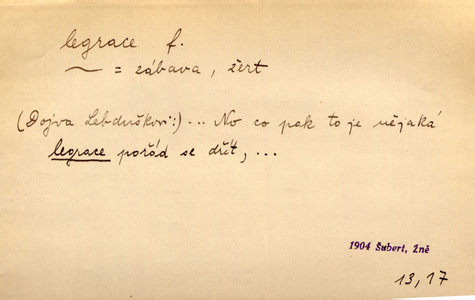 legrace f.
~ = zábava, žert
(Dojva Lebduškovi:) ... No co pak to je nějaká
legrace pořád se dřít, ...
1904 Šubert, Žně
13, 17